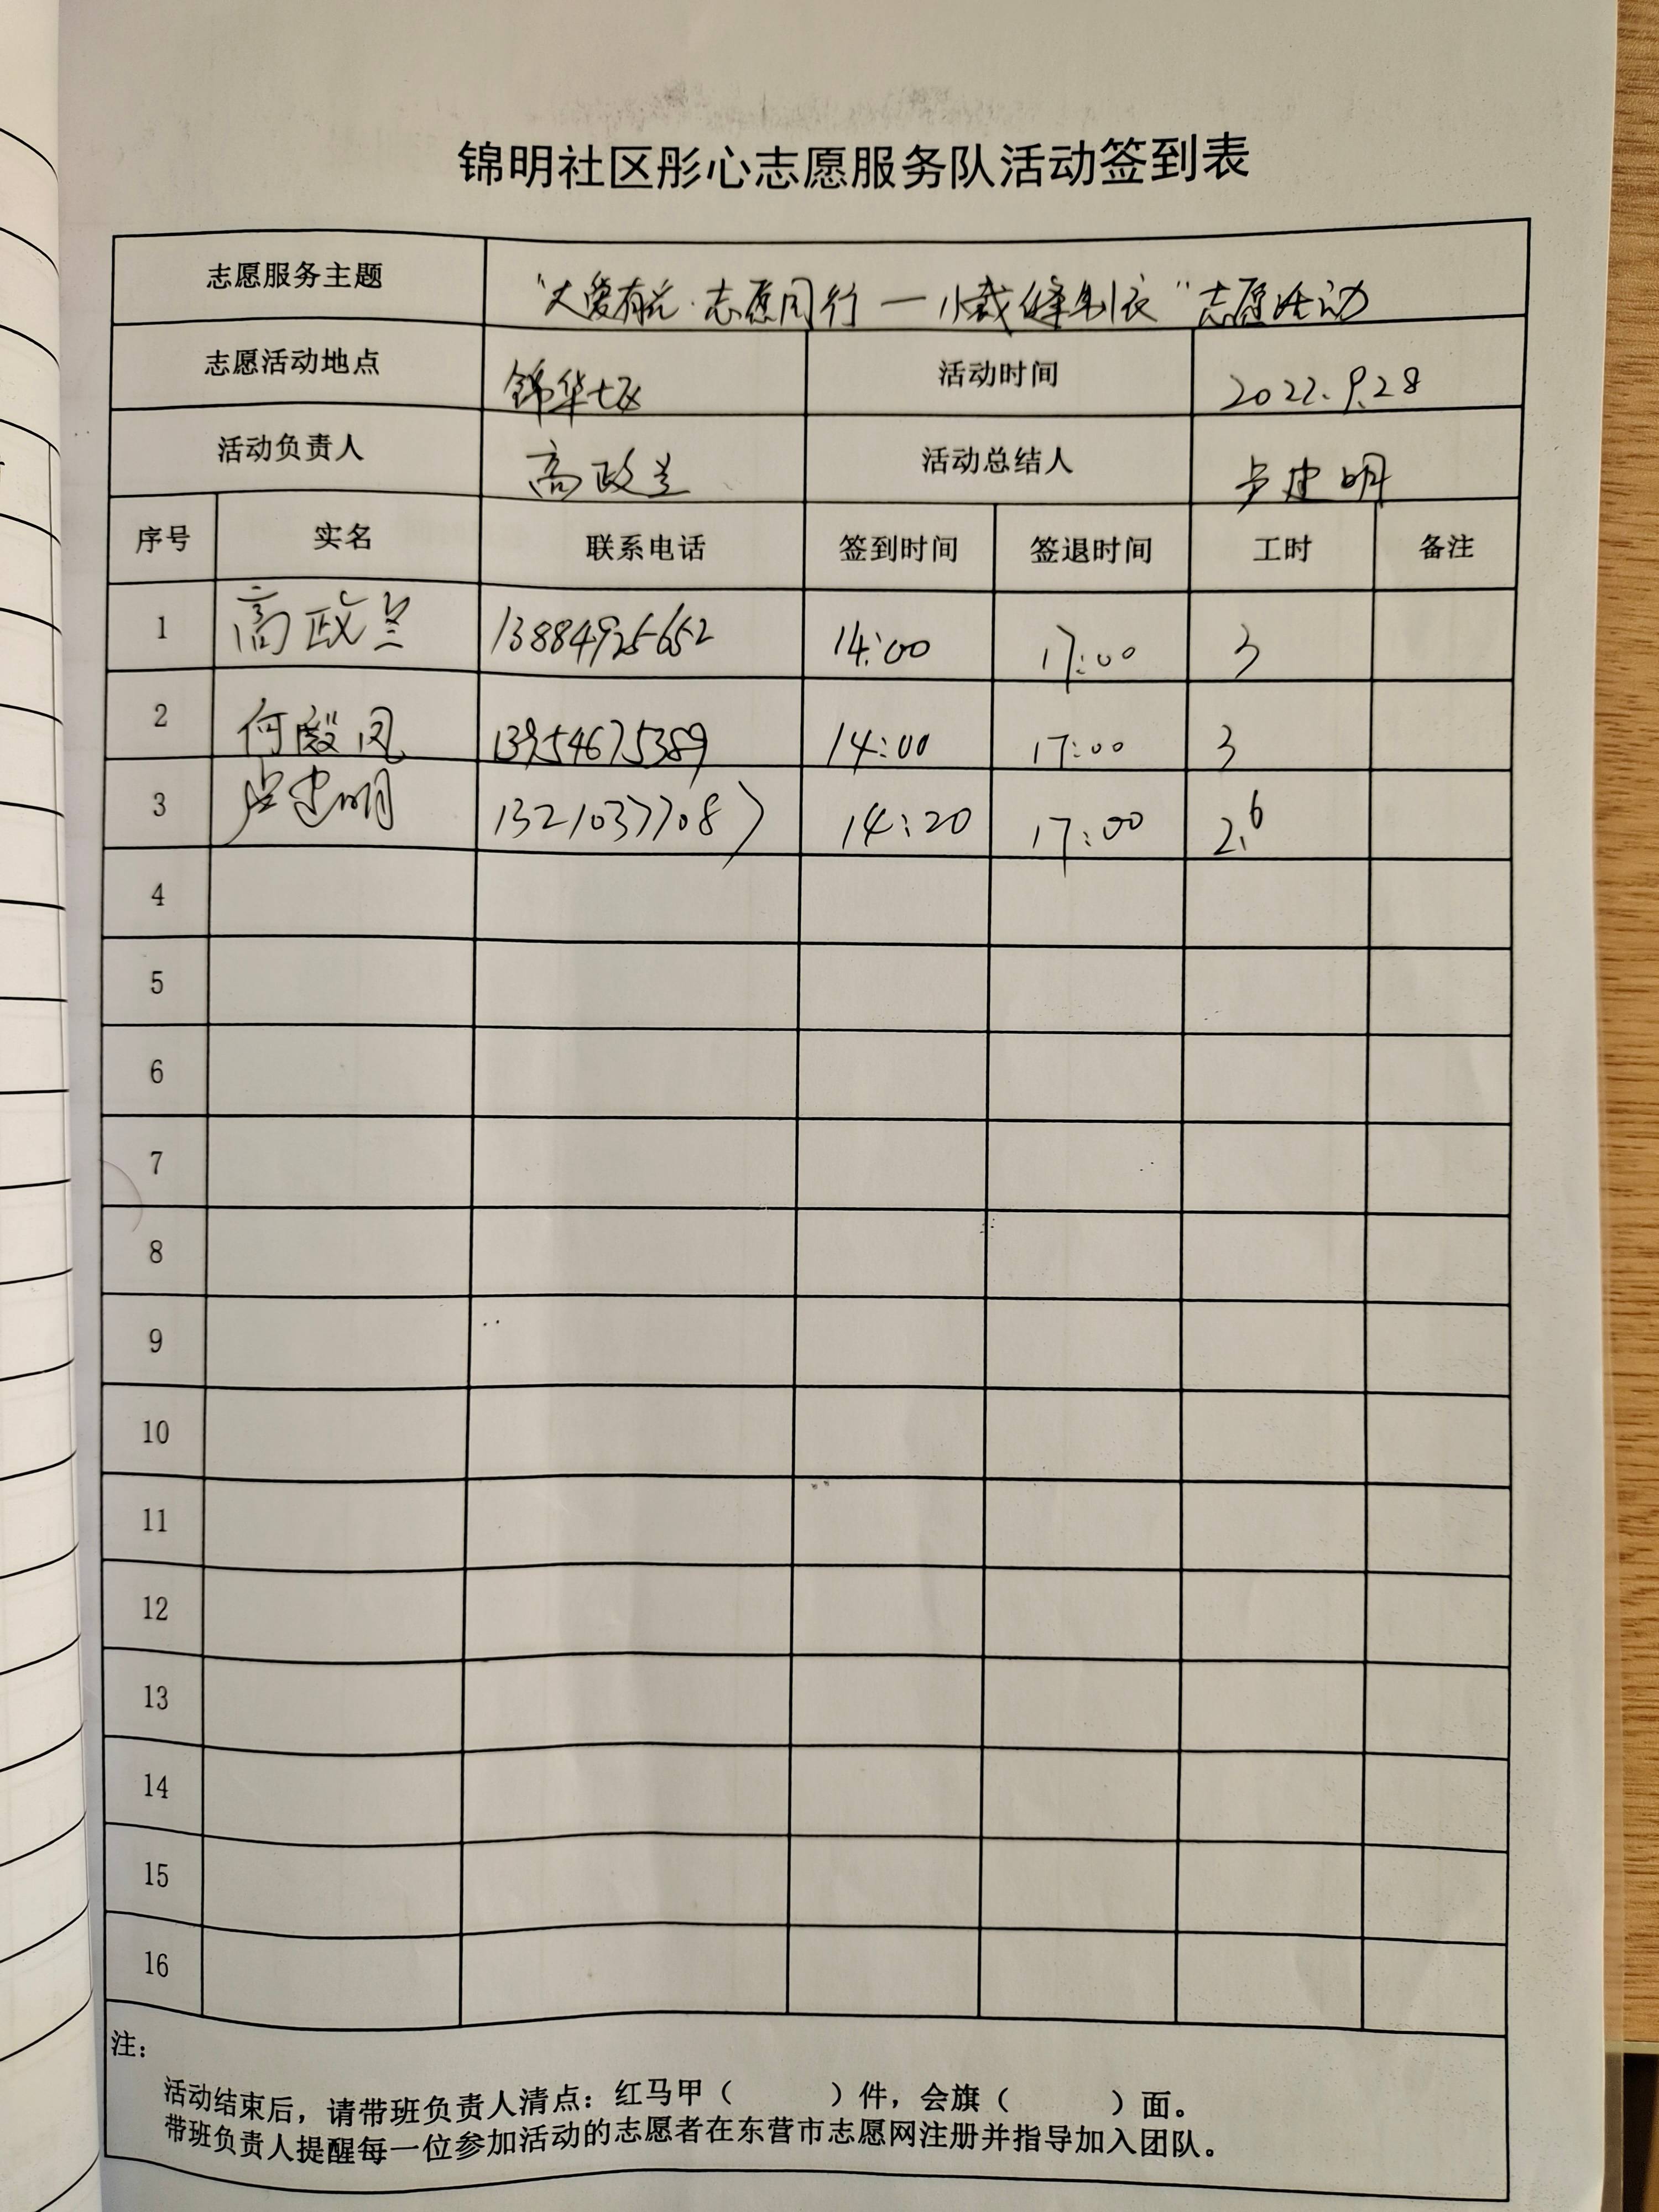 锦明社区彤心志愿服务队活动签到表
志愿服务主题 "大爱有光·志愿同行一小裁缝制衣"志愿活动
志愿活动地点 锦华七区 活动时间 2022.9.28
活动负责人 高政兰 活动总结人 卢建明
序号 实名 联系电话 签到时间 签退时间 工时 备注
1 高政兰 13884925652 14:00 17:00 3
2 何殿凤 13954675389 14:00 17:00 3
3 卢建明 13210377087 14:20 17:00 2.6
4
5
6
7
8
9
10
11
12
13
14
15
16
注：
活动结束后，请带班负责人清点：红马甲（ ）件，会旗（ ）面。
带班负责人提醒每一位参加活动的志愿者在东营市志愿网注册并指导加入团队。